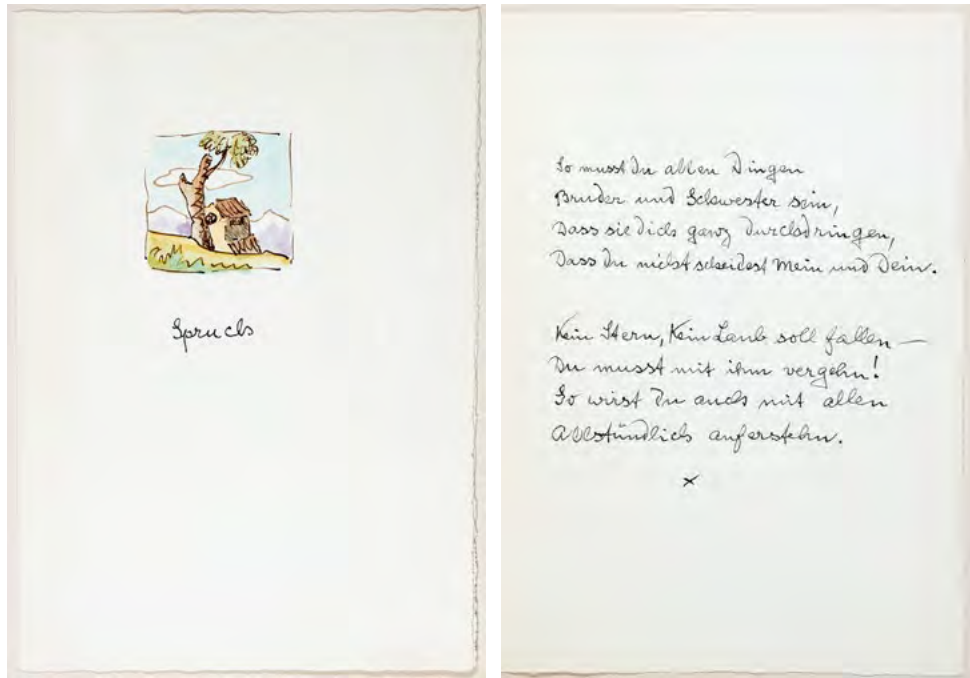 Spruch
So musst du allen Dingen
Bruder und Schwester sein,
Dass sie dich ganz durchdringen,
Dass du nicht scheidest Mein und Dein.
Kein Stern, kein Laub soll fallen —
Du musst mit ihm vergehn!
So wirst du auch mit allen
Allstündlich auferstehn.
x